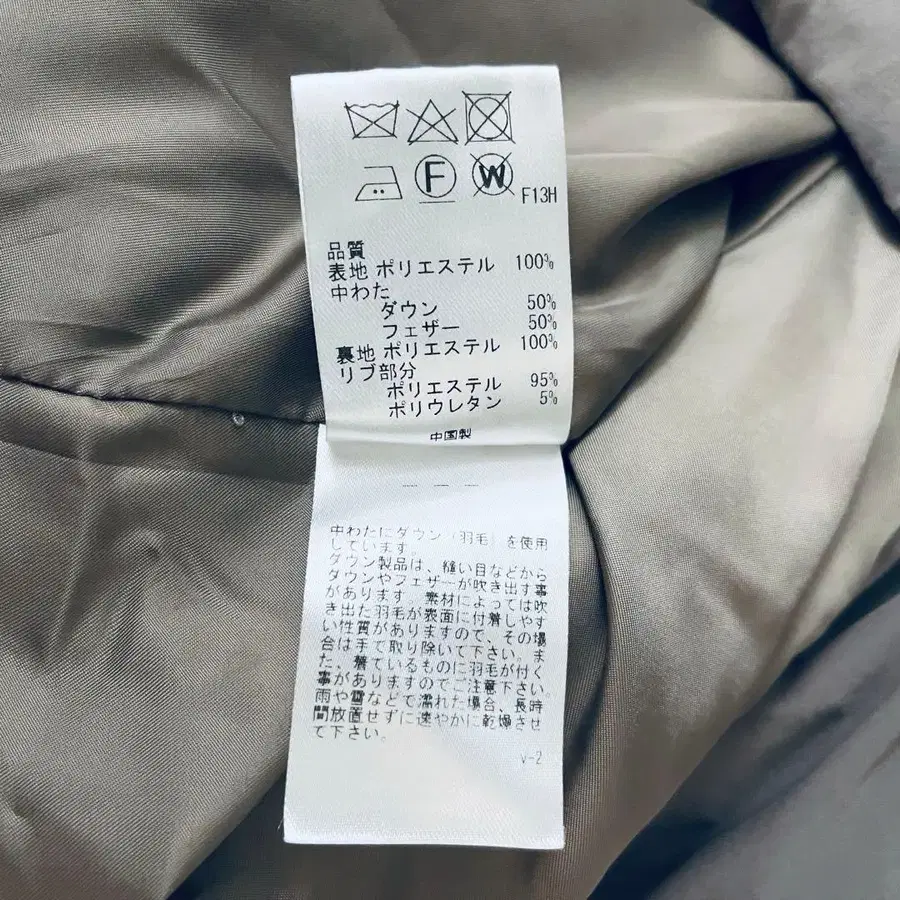 F
W
F13H
品質
表地 ポリエステル 100%
中わた
ダウン 50%
フェザー 50%
裏地 ポリエステル 100%
リブ部分
ポリエステル 95%
ポリウレタン 5%
中国製
中わたにダウン（羽毛）を使用
しています。
ダウン製品は、縫い目などから
ダウンやフェザーが吹き出す事
があります。素材によっては吹
き出た羽毛が表面に付着しやす
い性質がありますので、その場
合は手で取り除いて下さい。ま
た、着ているものに羽毛が付く
事がありますのでご注意下さい。
雨や雪などで濡れた場合、長時
間放置せずに速やかに乾燥させ
て下さい。
v-2